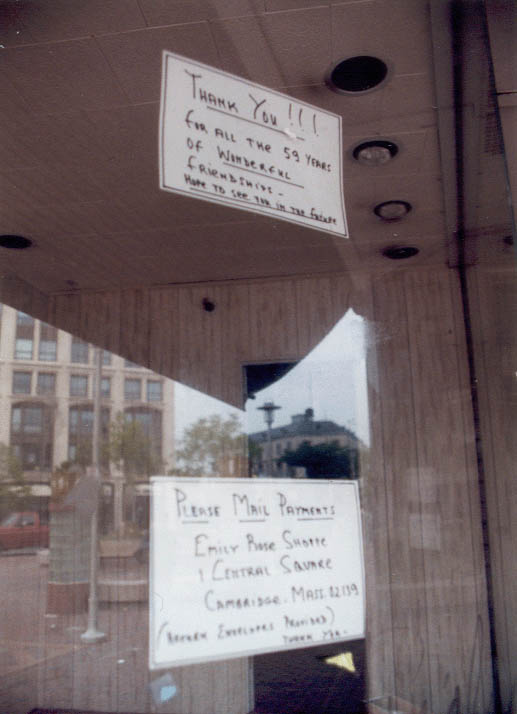 THANK YOU !!!
FOR ALL THE 59 YEARS
OF WONDERFUL
FRIENDSHIPS -
HOPE TO SEE YOU IN THE FUTURE
PLEASE MAIL PAYMENTS
EMILY ROSE SHOPPE
1 CENTRAL SQUARE
CAMBRIDGE. MASS. 02139
(RETURN ENVELOPES PROVIDED)
THANK YOU -